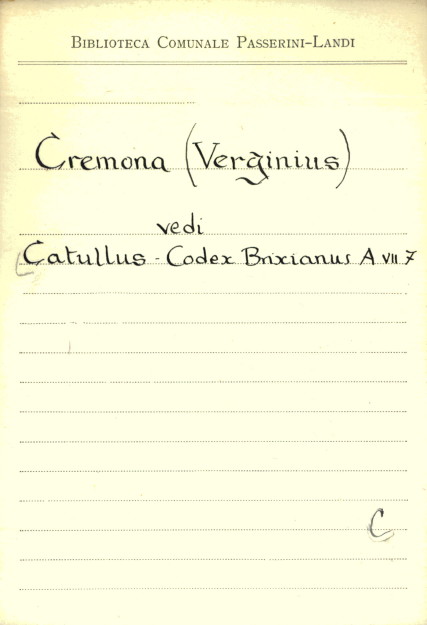 Biblioteca Comunale Passerini-Landi
Cremona (Verginius)
vedi
Catullus - Codex Brixianus A VII 7
C